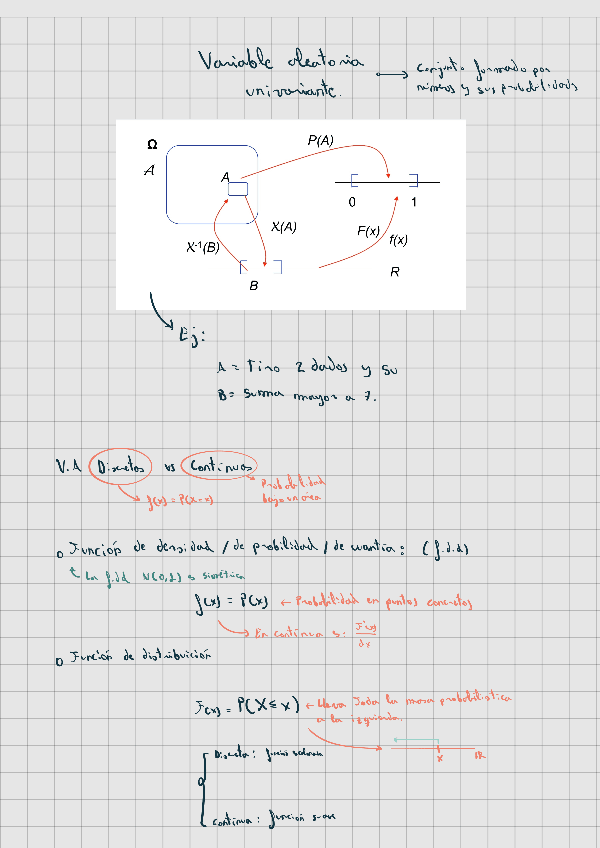 Variable aleatoria
univariante.
Conjunto formado por
números y sus probabilidades
Ω
A
A
P(A)
0 1
X(A)
F(x)
f(x)
X⁻¹(B)
B
R
Ej:
A = Tiro 2 dados y su
B = Suma mayor a 7.
V.A Discretas vs Continuas
f(x) = P(X=x)
Probabilidad
bajo un área
o Función de densidad / de probilidad / de cuantia: (f.d.d)
La f.d.d N(0,1) es simétrica
f(x) = P(x) ← Probabilidad en puntos concretos
En continua es: F(x)
dx
o Función de distribuición
F(x) = P(X ≤ x) ← Lleva toda la masa probabilística
a la izquierda.
x
IR
Discreta: función
Continua: función suave